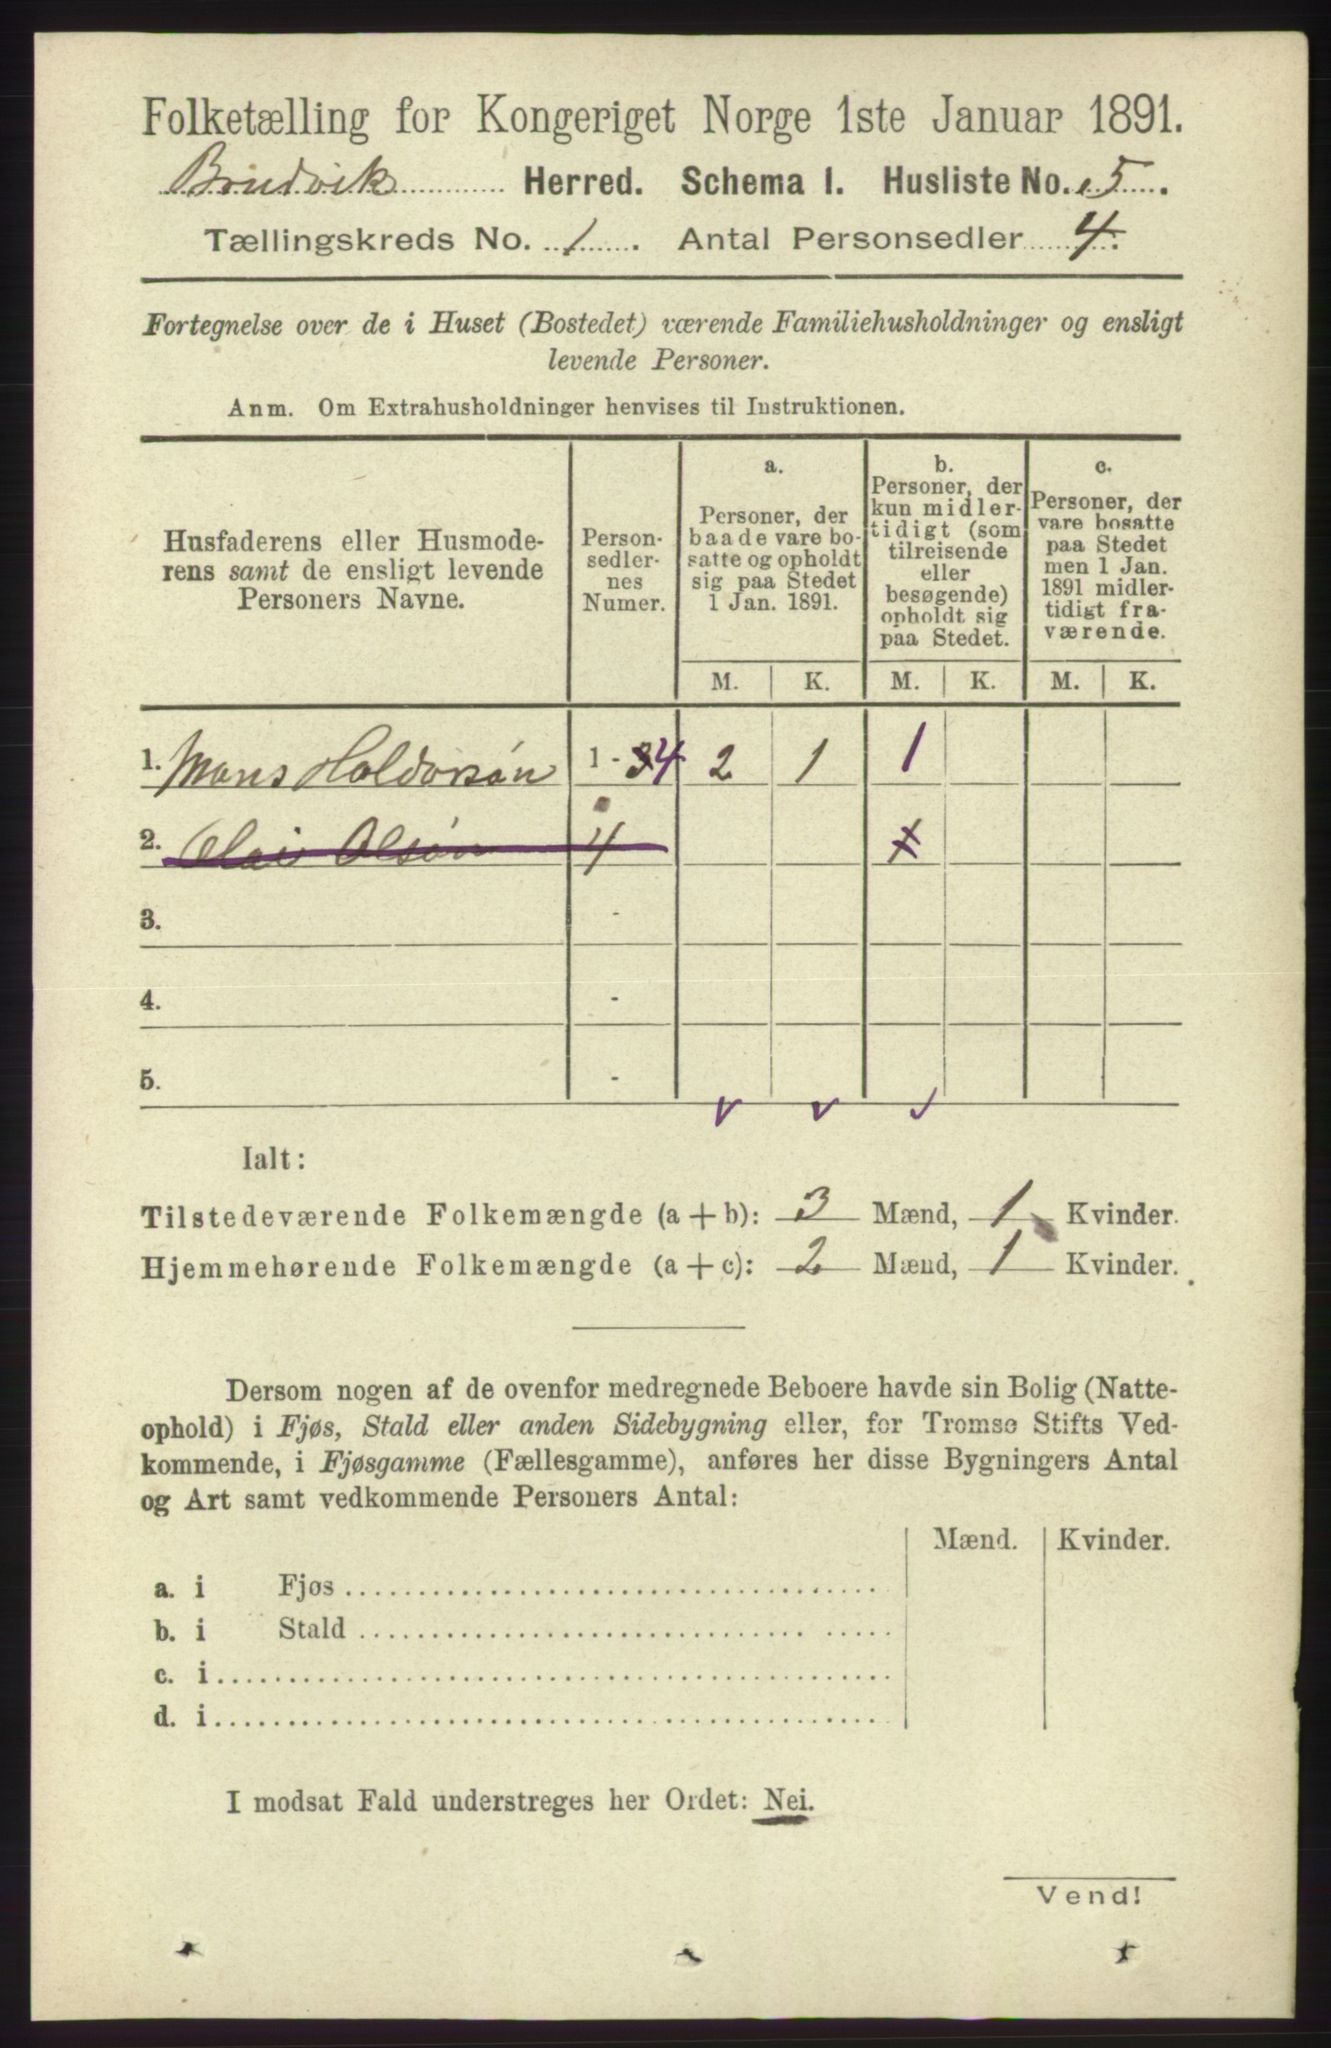 Folketælling for Kongeriget Norge 1ste Januar 1891.
Bruvik Herred. Schema I. Husliste No. 5.
Tællingskreds No. 1. Antal Personsedler 4.
Fortegnelse over de i Huset (Bostedet) værende Familiehusholdninger og ensligt
levende Personer.
Anm. Om Extrahusholdninger henvises til Instruktionen.
Husfaderens eller Husmode-
rens samt de ensligt levende
Personers Navne.
Person-
sedler-
nes
Numer.
a.
Personer, der
baade vare bo-
satte og opholdt
sig paa Stedet
1 Jan. 1891.
b.
Personer, der
kun midler-
tidigt (som
tilreisende
eller
besøgende)
opholdt sig
paa Stedet.
c.
Personer, der
vare bosatte
paa Stedet
men 1 Jan.
1891 midler-
tidigt fra-
værende.
M. K. M. K. M. K.
1. Mons Haldorsøn 1 - 4 2 1 1
2. Olai Olsøn 4
3. -
4. -
5. -
Ialt:
Tilstedeværende Folkemængde (a + b): 3 Mænd, 1 Kvinder.
Hjemmehørende Folkemængde (a + c): 2 Mænd, 1 Kvinder.
Dersom nogen af de ovenfor medregnede Beboere havde sin Bolig (Natte-
ophold) i Fjøs, Stald eller anden Sidebygning eller, for Tromsø Stifts Ved-
kommende, i Fjøsgamme (Fællesgamme), anføres her disse Bygningers Antal
og Art samt vedkommende Personers Antal:
Mænd. Kvinder.
a. i Fjøs
b. i Stald
c. i
d. i
I modsat Fald understreges her Ordet: Nei.
Vend!